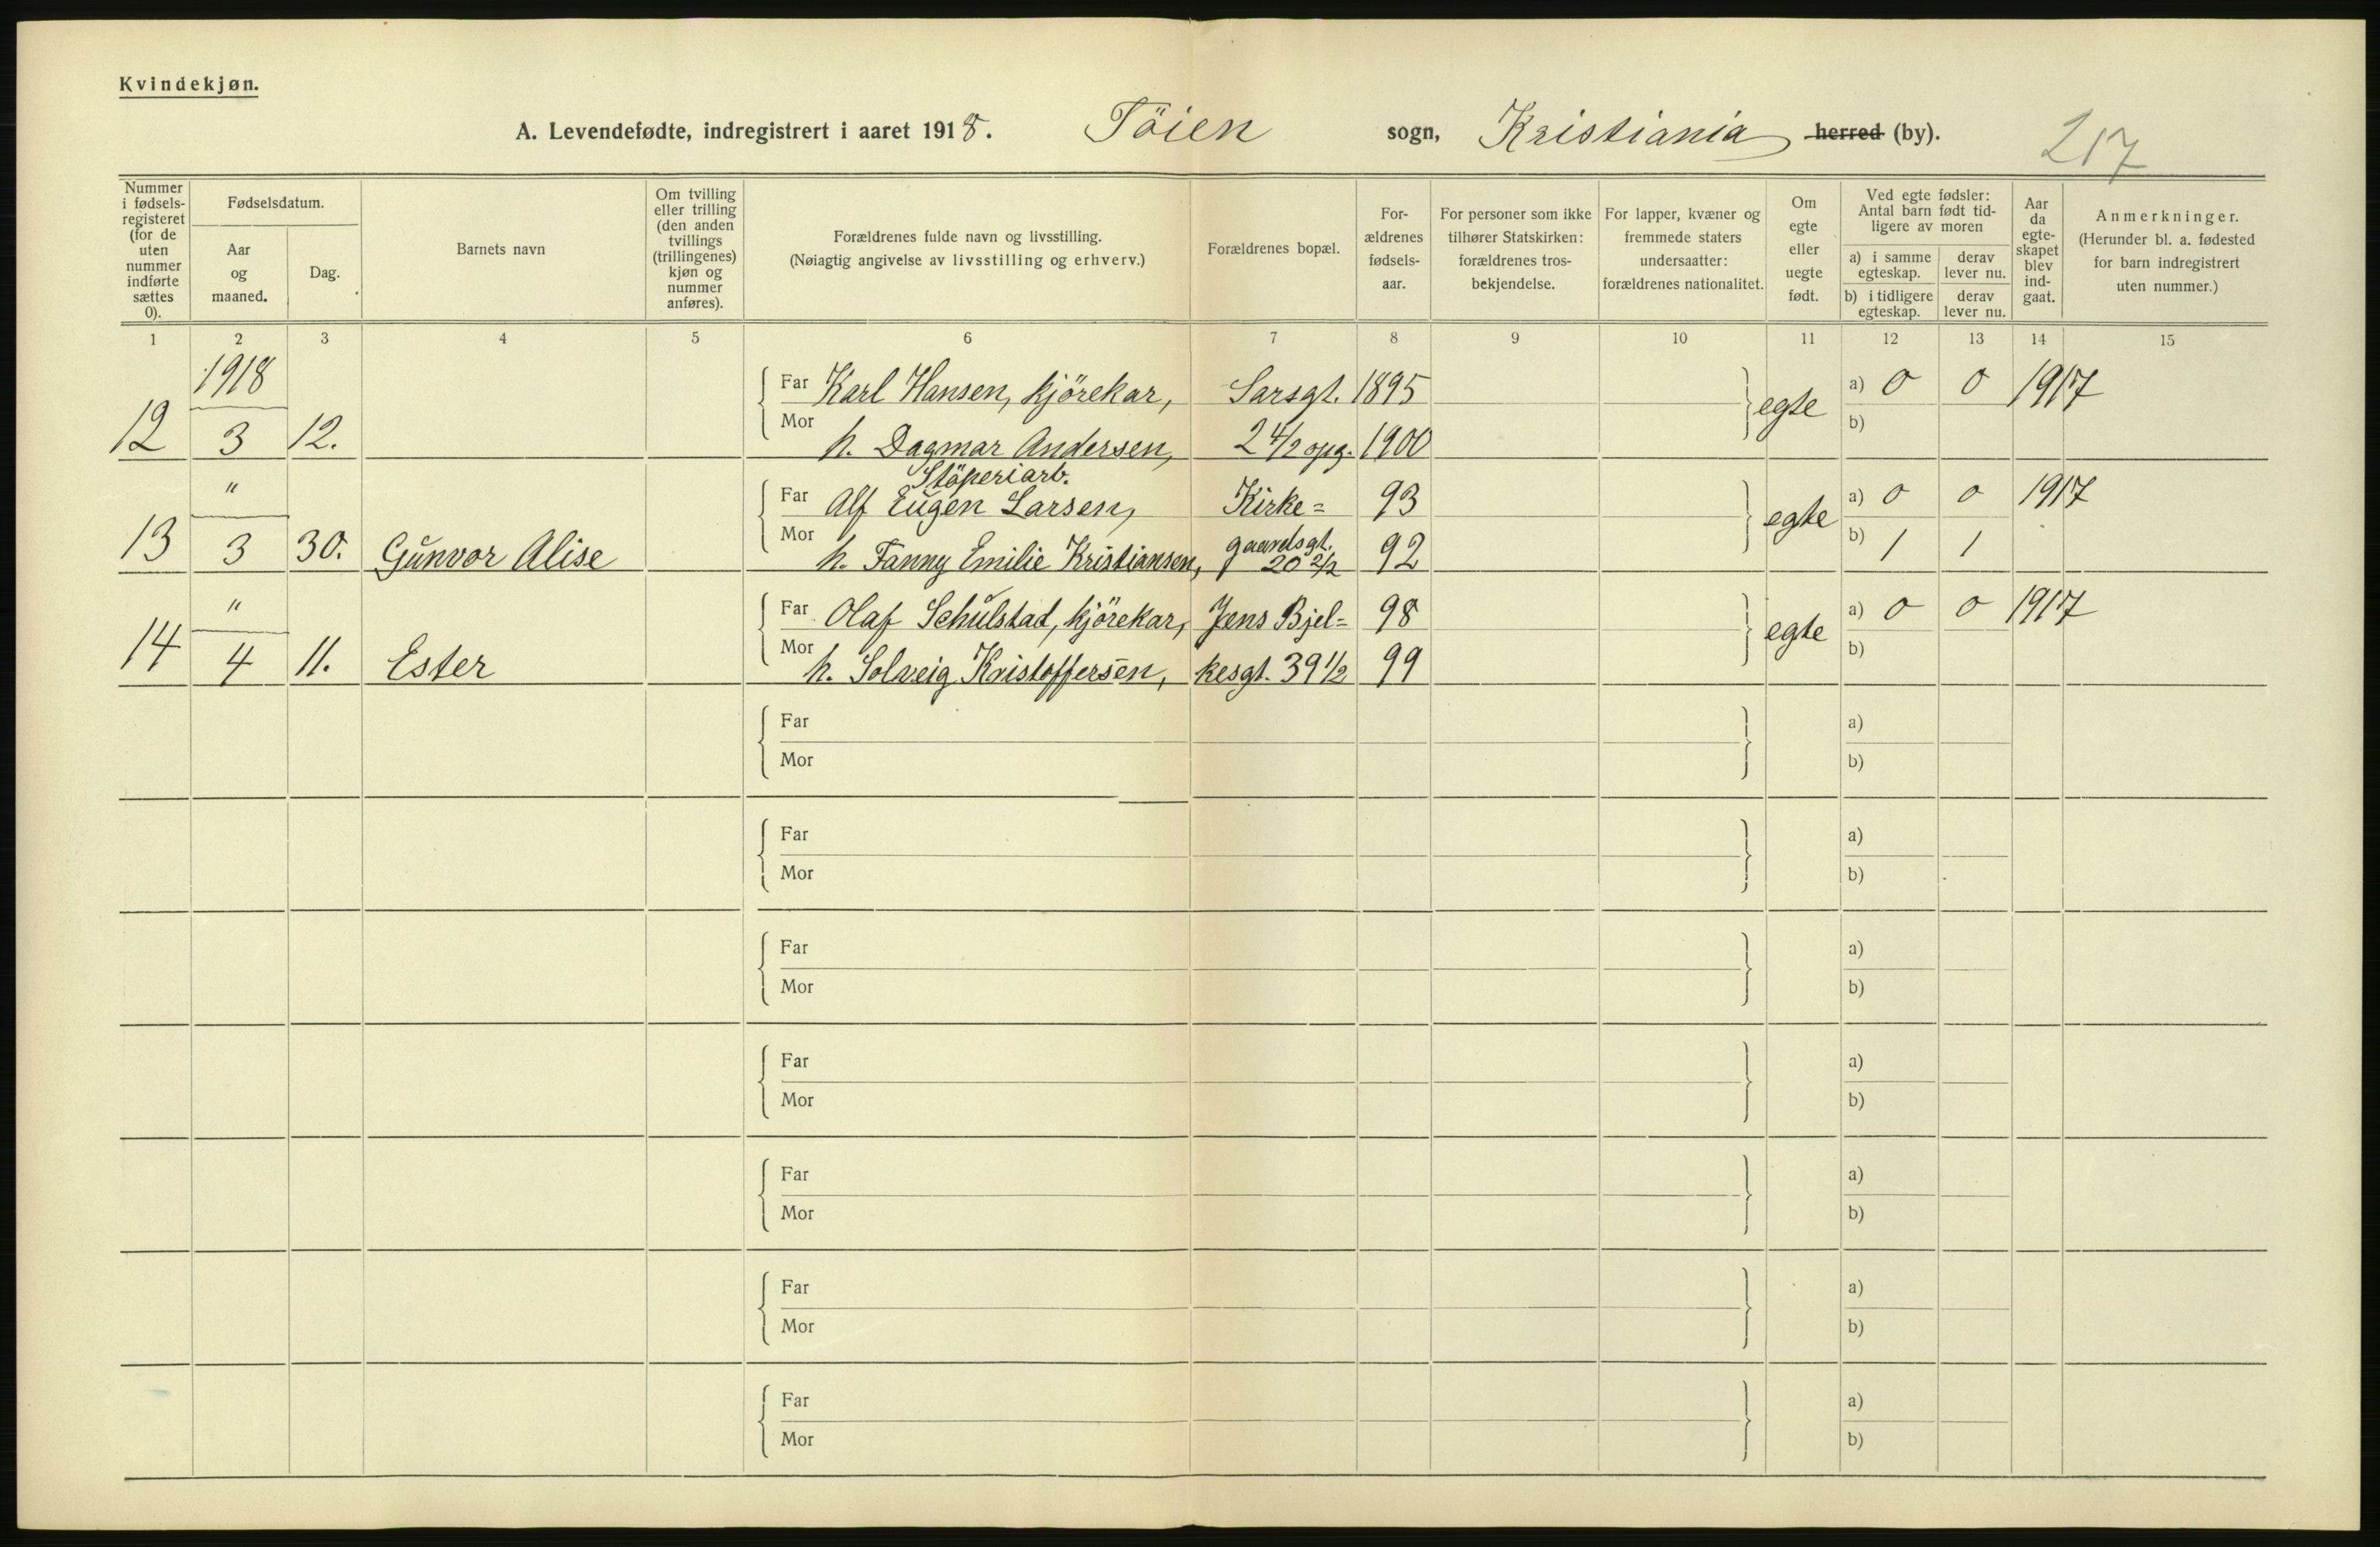 Kvindekjøn.
A. Levendefødte, indregistrert i aaret 1918. Töien sogn, Kristiania herred (by). 217
Nummer i fødselsregisteret (for de uten nummer indførte sættes 0).
Fødselsdatum.
Aar og maaned.
Dag.
Barnets navn
Om tvilling eller trilling (den anden tvillings (trillingenes) kjøn og nummer anføres).
Forældrenes fulde navn og livsstilling.
(Nøiagtig angivelse av livsstilling og erhverv.)
Forældrenes bopæl.
Forældrenes fødselsaar.
For personer som ikke tilhører Statskirken: forældrenes trosbekjendelse.
For lapper, kvæner og fremmede staters undersaatter: forældrenes nationalitet.
Om egte eller uegte født.
Ved egte fødsler: Antal barn født tidligere av moren
a) i samme egteskap.
derav lever nu.
b) i tidligere egteskap.
derav lever nu.
Aar da egteskapet blev indgaat.
Anmerkninger.
(Herunder bl. a. fødested for barn indregistrert uten nummer.)
1 2 3 4 5 6 7 8 9 10 11 12 13 14 15
1918 Far Karl Hansen, kjörekar, Sarsgt. 1895 egte a) 0 0 1917
12 3 12. Mor h. Dagmar Andersen, 2 4/2 opg. 1900 b)
Stöperiarb.
" Far Alf Eugen Larsen, Kirke= 93 egte a) 0 0 1917
13 3 30. Gunvor Alise Mor h. Fanny Emilie Kristiansen, gaardsgt. 20 2/2 92 b) 1 1
" Far Olaf Schulstad, kjörekar, Jens Bjel= 98 egte a) 0 0 1917
14 4 11. Ester Mor h. Solveig Kristoffersen, kesgt. 39 1/2 99 b)
Far a)
Mor b)
Far a)
Mor b)
Far a)
Mor b)
Far a)
Mor b)
Far a)
Mor b)
Far a)
Mor b)
Far a)
Mor b)